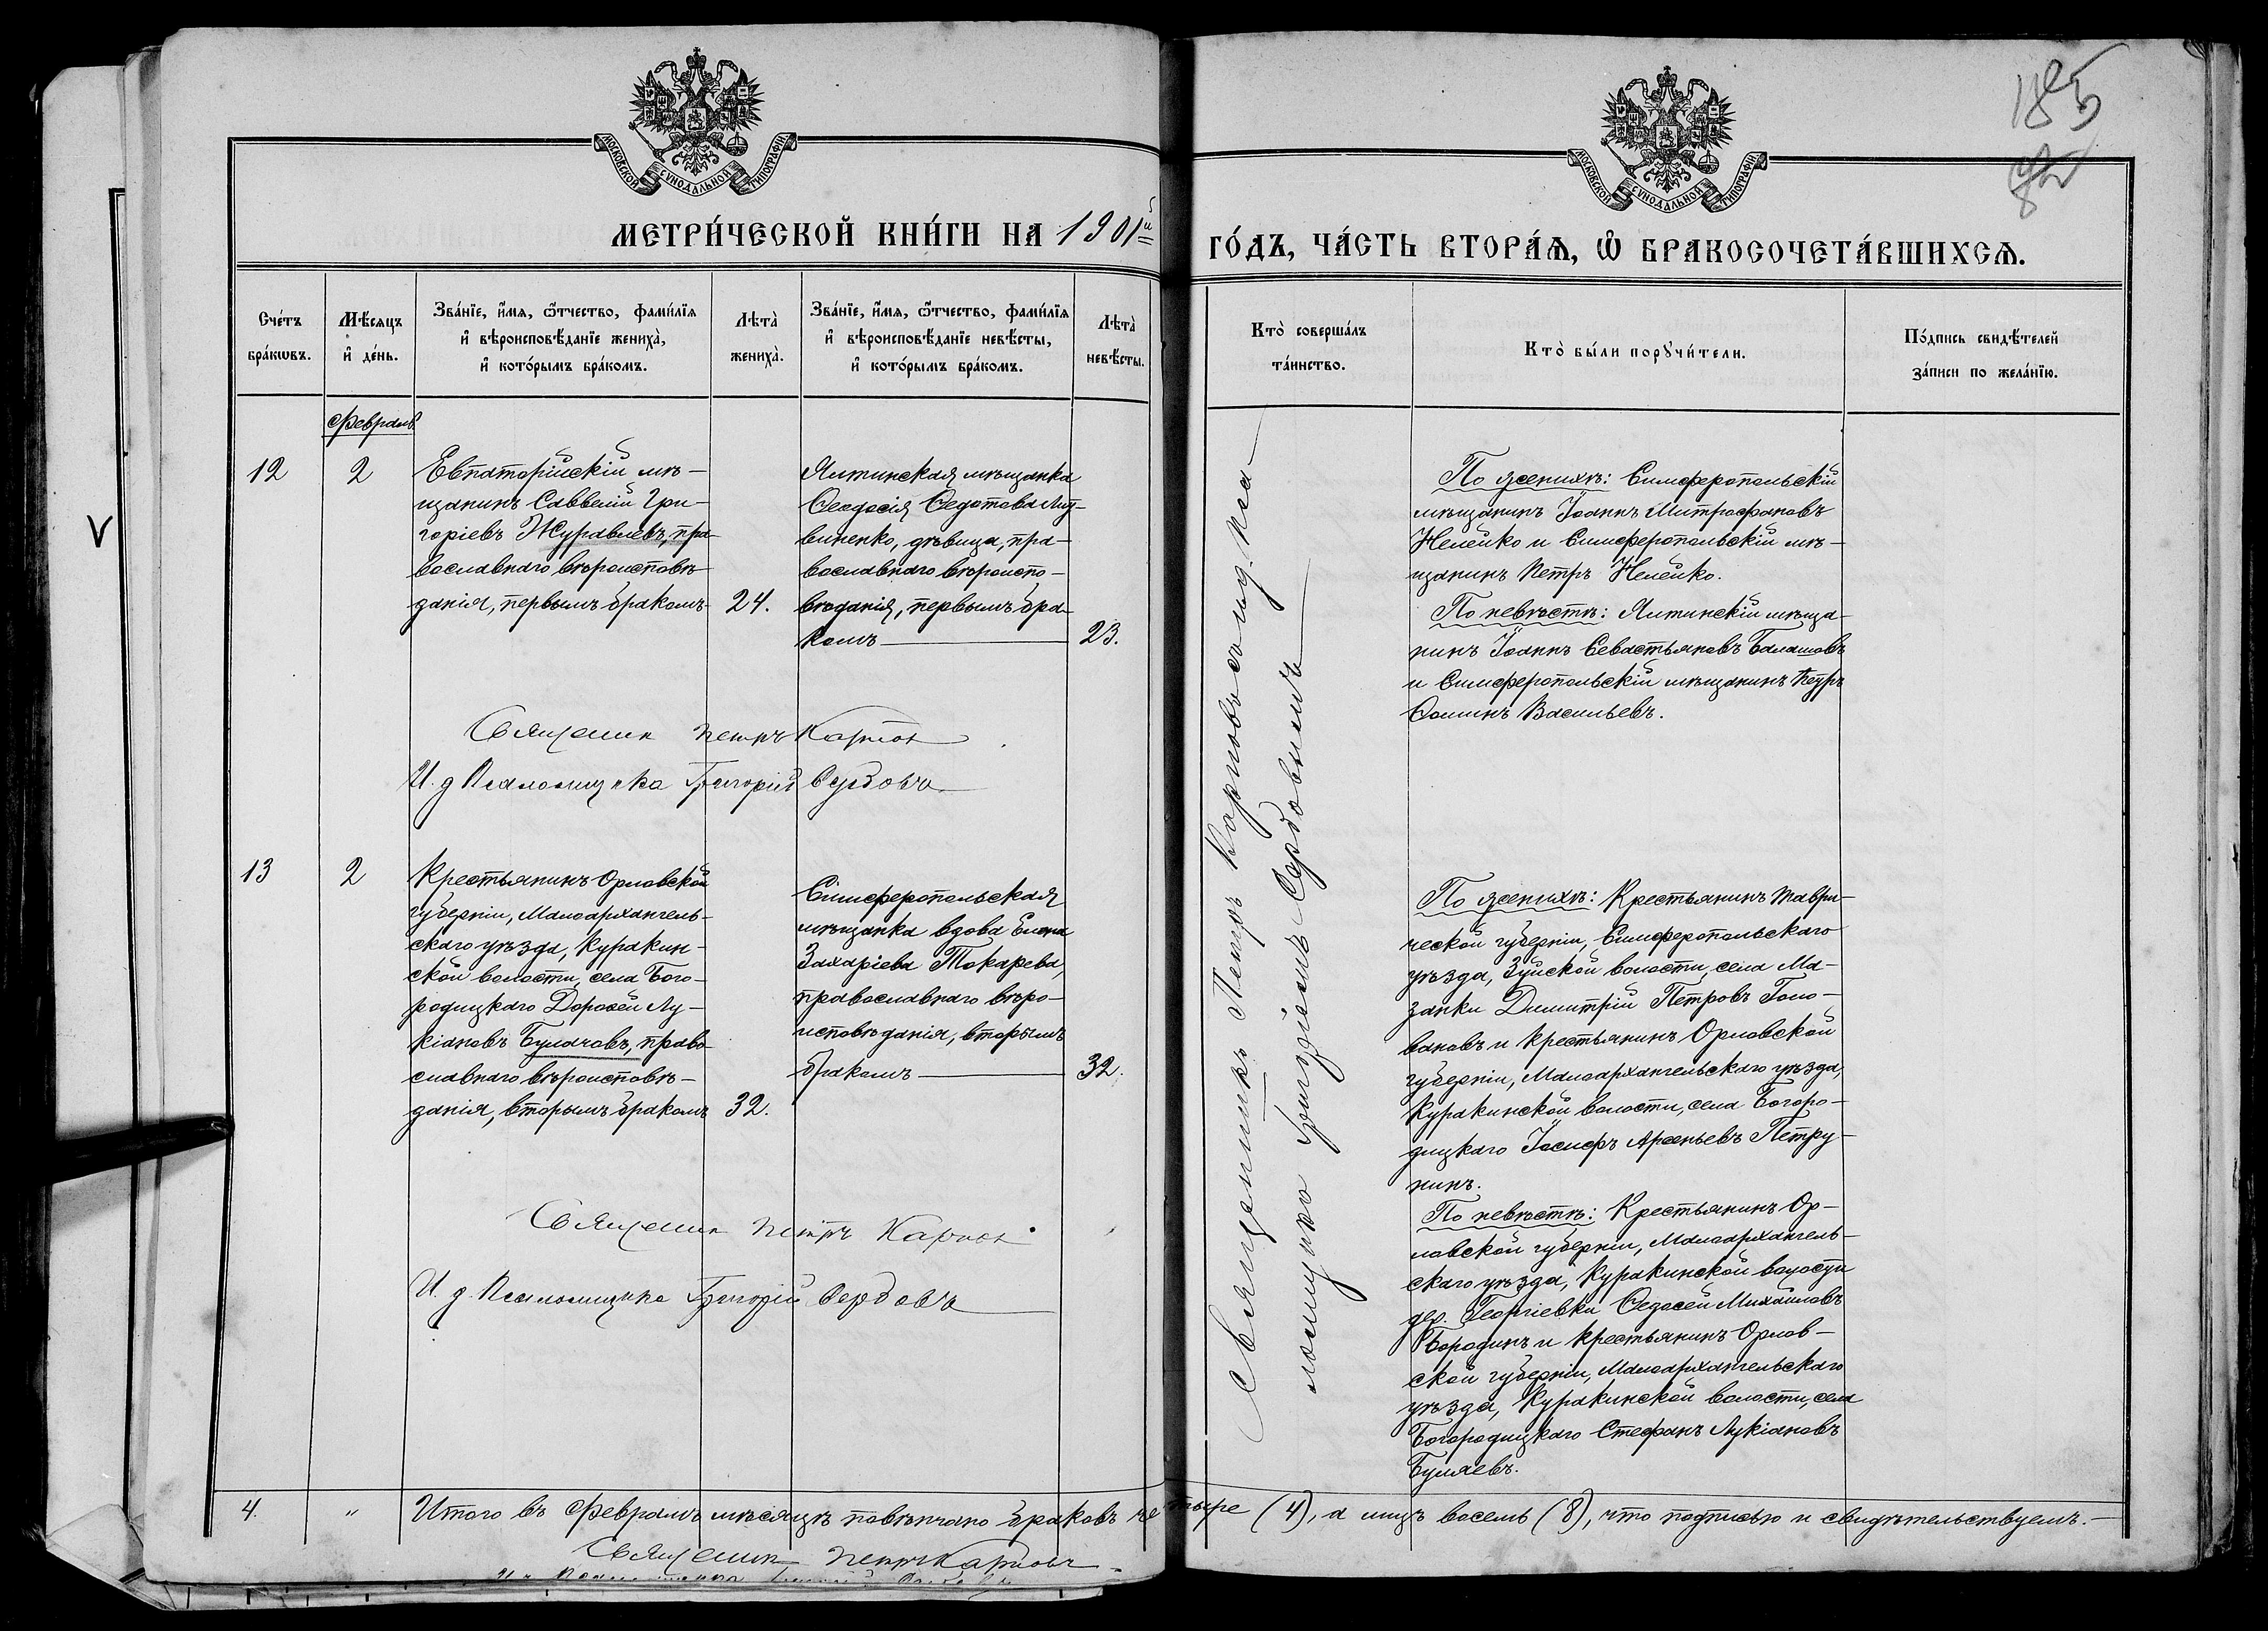 185
МОСКОВСКОЙ СѴНОДАЛЬНОЙ ТИПОГРАФІИ
МОСКОВСКОЙ СѴНОДАЛЬНОЙ ТИПОГРАФІИ
МЕТРИ́ЧЕСКОЙ КНИ́ГИ НА 1901й
ГО́ДЪ, ЧА́СТЬ ВТОРА́Ѧ, Ѽ БРАКОСОЧЕТА́ВШИХСѦ.
Сче́тъ
бра́кѡвъ.
Мѣ́сяцъ
и҆ де́нь.
Зва́нїе, и҆́мя, ѻ҆́тчество, фами́лїя
и҆ вѣроисповѣ́данїе жениха̀,
и҆ кото́рымъ бра́комъ.
Лѣта̀
жениха̀.
Зва́нїе, и҆́мя, ѻ҆́тчество, фами́лїя
и҆ вѣроисповѣ́данїе невѣ́сты,
и҆ кото́рымъ бра́комъ.
Лѣта̀
невѣ́сты.
Кто̀ соверша́лъ
та́инство.
Кто̀ бы́ли порꙋчи́тели.
По́дпись свидѣ́телей
за́писи по жела́нїю.
Февраль
12
2
Евпаторійскій мѣ-
щанинъ Савелій Гри-
горіевъ Журавлевъ, пра-
вославнаго вѣроисповѣ-
данія, первымъ бракомъ
24.
Ялтинская мѣщанка
Ѳеодосія Ѳедотова Лит-
виненко, дѣвица, пра-
вославнаго вѣроиспо-
вѣданія, первымъ бра-
комъ
23.
По женихѣ: Симферопольскій
мѣщанинъ Іоаннъ Митрофановъ
Нелейко и Симферопольскій мѣ-
щанинъ Петръ Нелейко.
По невѣстѣ: Ялтинскій мѣща-
нинъ Іоаннъ Севастьяновъ Балашовъ
и Симферопольскій мѣщанинъ Петръ
Ѳоминъ Васильевъ.
Священник Петръ Карпов
И. д. Псаломщика Григорій Сербовъ
13
2
Крестьянинъ Орловской
губерніи, Малоархангель-
скаго уѣзда, Куракин-
ской волости, села Бого-
родицкаго Дорофей Лу-
кіановъ Булачовъ, право-
славнаго вѣроисповѣ-
данія, вторымъ бракомъ
32.
Симферопольская
мѣщанка вдова Елена
Захаріева Токарева,
православнаго вѣро-
исповѣданія, вторымъ
бракомъ
32.
По женихѣ: Крестьянинъ Таври-
ческой губерніи, Симферопольскаго
уѣзда, Зуйской волости, села Ма-
занки Димитрій Петровъ Голо-
вановъ и крестьянинъ Орловской
губерніи, Малоархангельскаго уѣзда,
Куракинской волости, села Богоро-
дицкаго Іосифъ Арсеньевъ Петру-
нинъ.
По невѣстѣ: Крестьянинъ Ор-
ловской губерніи, Малоархангель-
скаго уѣзда, Куракинской волости
дер. Георгіевки Ѳедосей Михайловъ
Бородинъ и крестьянинъ Орлов-
ской губерніи, Малоархангельскаго
уѣзда, Куракинской волости, села
Богородицкаго Стефанъ Лукіановъ
Буляевъ.
Священник Петръ Карпов
И. д. Псаломщика Григорій Сербовъ
Священникъ Петръ Карповъ съ и. д. Пса-
ломщика Григоріемъ Сербовымъ
4. " Итого въ Февралѣ мѣсяцѣ повѣнчано браковъ четыре (4), а лицъ восемь (8), что подписью и свидѣтельствуемъ.
Священник Петръ Карповъ